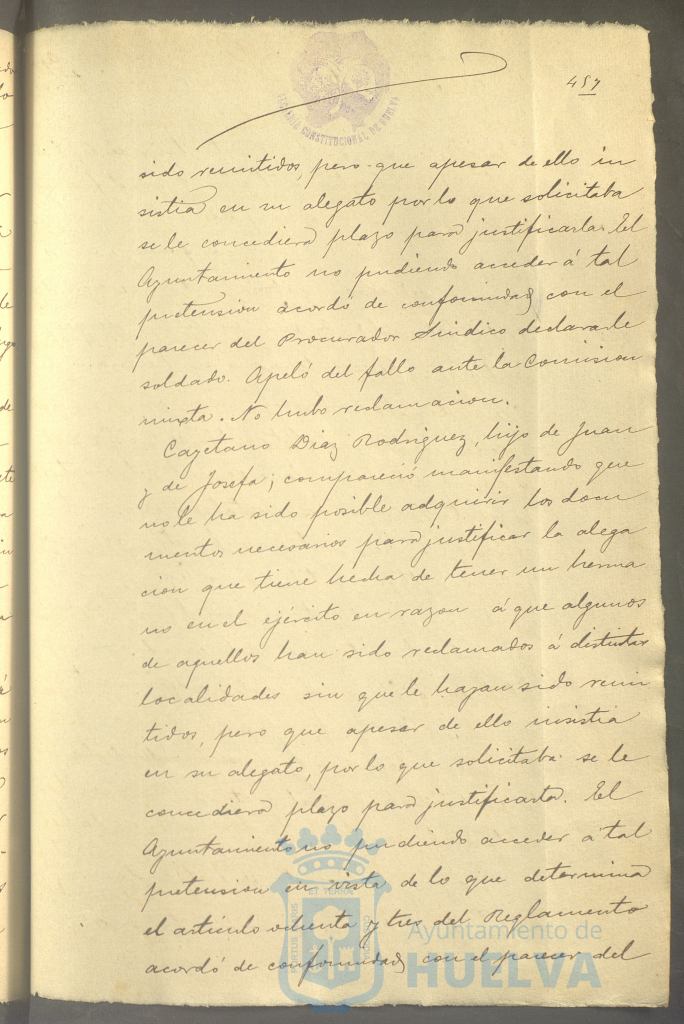 457
ALCALDIA CONSTITUCIONAL DE HUELVA
sido remitidos, pero que apesar de ello in
sistia en su alegato por lo que solicitaba
se le concediera plazo para justificarla. El
Ayuntamiento no pudiendo acceder á tal
pretension acordó de conformidad con el
parecer del Procurador Sindico declararle
soldado. Apeló del fallo ante la Comision
mixta. No hubo reclamacion.
Cayetano Diaz Rodriguez, hijo de Juan
y de Josefa; compareció manifestando que
no le ha sido posible adquirir los docu
mentos necesarios para justificar la alega
cion que tiene hecha de tener un herma
no en el ejército en razon á que algunos
de aquellos han sido reclamados á distintas
localidades sin que le hayan sido remi
tidos, pero que apesar de ello insistia
en su alegato, por lo que solicitaba se le
concediera plazo para justificarla. El
Ayuntamiento no pudiendo acceder á tal
pretension en vista de lo que determina
el articulo ochenta y tres del Reglamento
acordó de conformidad con el parecer del
Ayuntamiento de
HUELVA